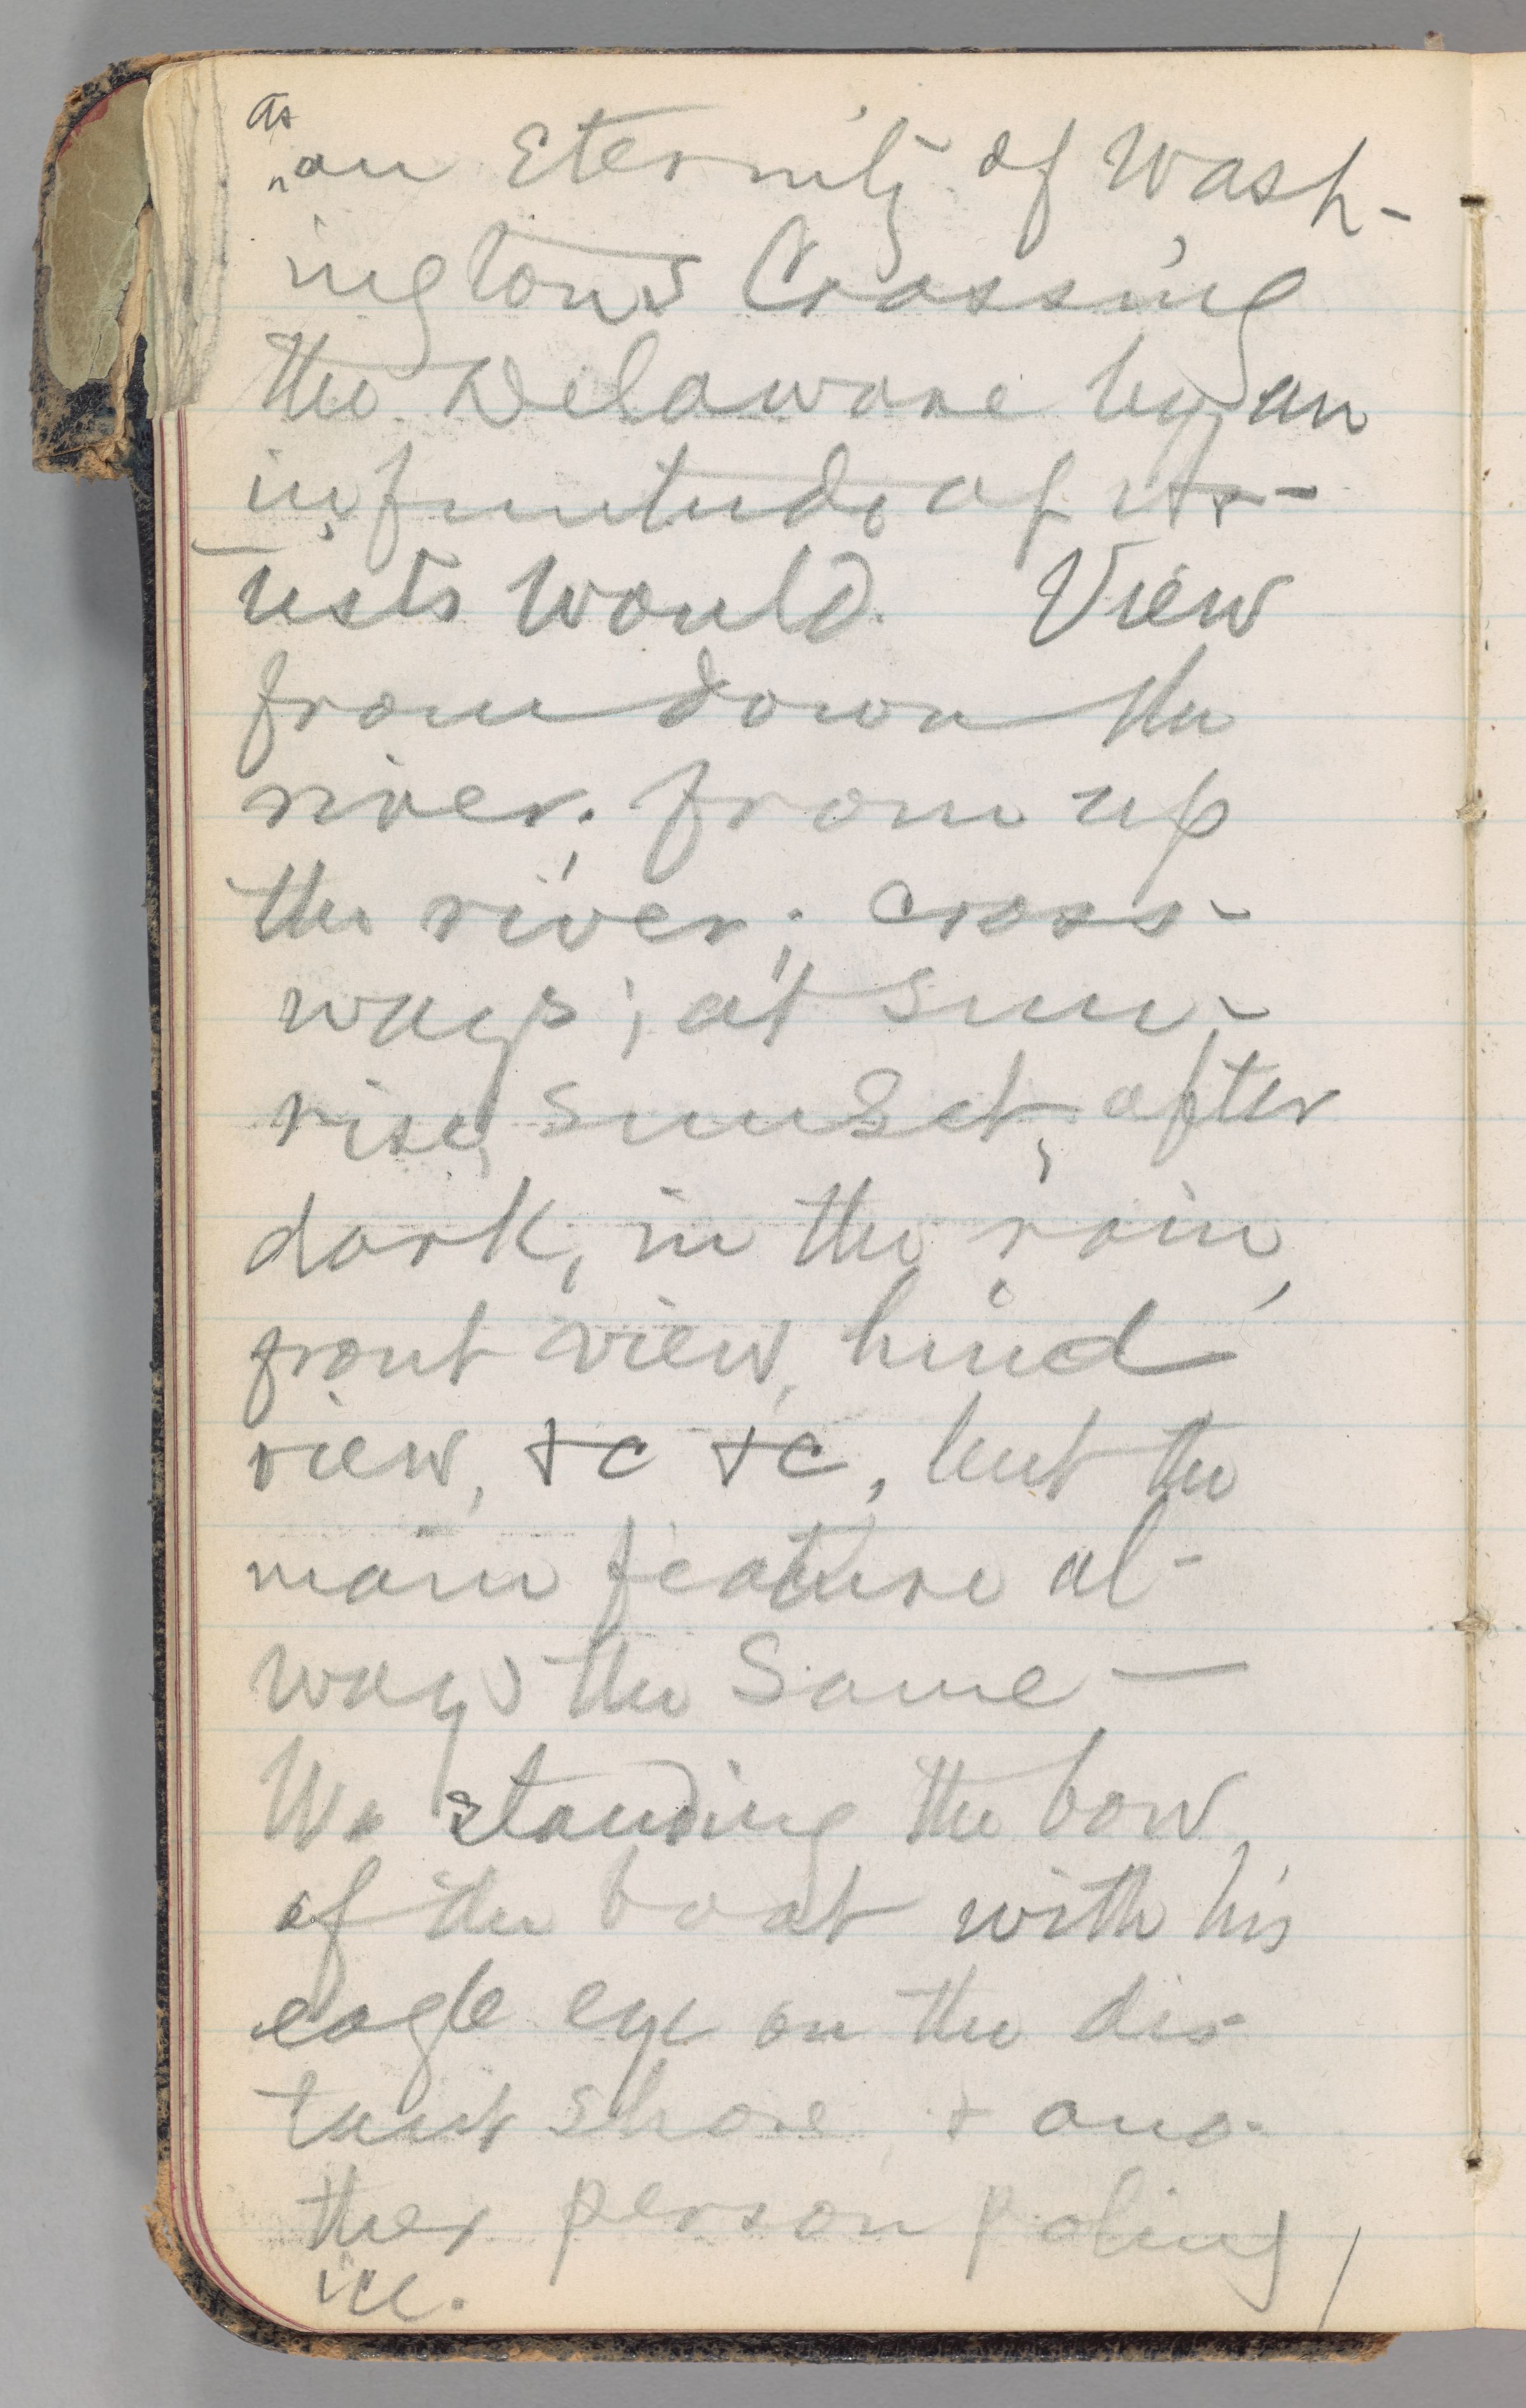 as
an Eternity of Wash-
ingtons Crossing
the Delaware by an
infinitude of Ar-
tists would. View
from down the
river; from up
the river; cross-
ways; at sun-
rise, sunset, after
dark, in the rain,
front view, hind
view, &c &c, but the
main feature al-
ways the Same —
W. standing the bow
of the boat with his
eagle eye on the dis-
tant shore & ano-
ther person poling
ice.